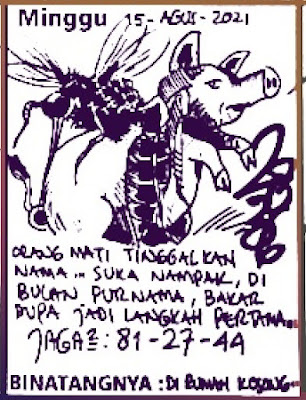 Minggu 15-AGUS-2021
ORANG MATI TINGGALKAN
NAMA... SUKA NAMPAK, DI
BULAN PURNAMA, BAKAR
DUPA JADI LANGKAH PERTAMA..
JAGA²: 81-27-44
BINATANGNYA : DI RUMAH KOSONG